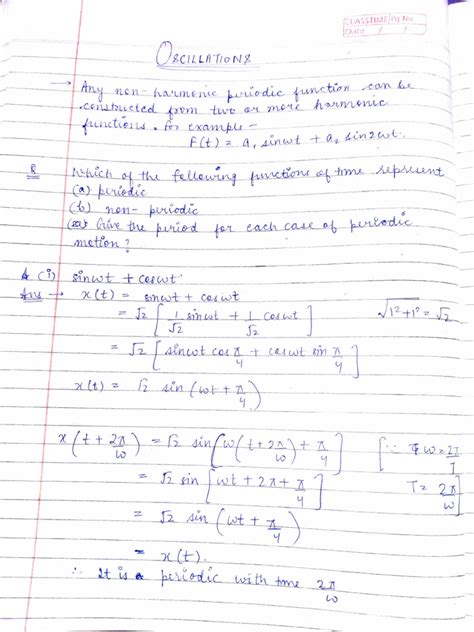 OSCILLATIONS
→ Any non-harmonic periodic function can be
constructed from two or more harmonic
functions. For example -
F(t) = a₁ sinωt + a₂ sin2ωt.
Q Which of the following functions of time represent
(a) periodic
(b) non-periodic
Give the period for each case of periodic
motion?
(i) sinωt + cosωt
Ans → x(t) = sinωt + cosωt
= √2 [ 1/√2 sinωt + 1/√2 cosωt ] √1²+1² = √2
= √2 [ sinωt cos π/4 + cosωt sin π/4 ]
x(t) = √2 sin (ωt + π/4)
x(t + 2π/ω) = √2 sin [ω(t + 2π/ω) + π/4] [∵ ω = 2π/T
= √2 sin [ωt + 2π + π/4] T = 2π/ω]
= √2 sin (ωt + π/4)
= x(t).
∴ It is a periodic with time 2π/ω